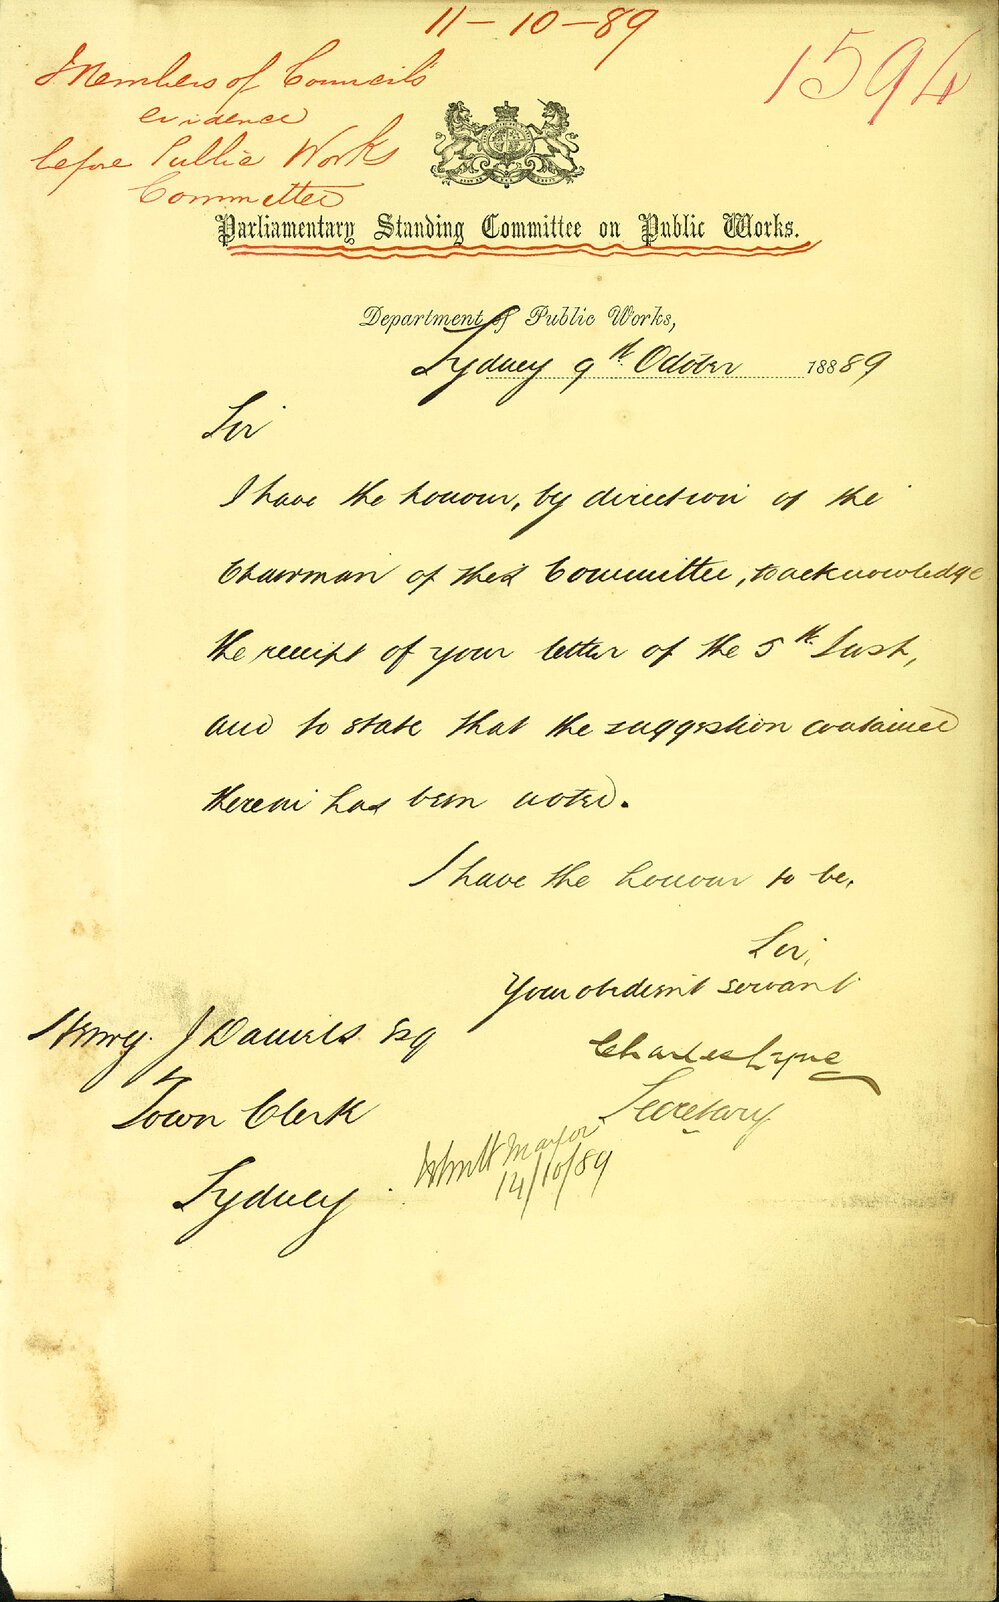 11-10-89
1594
Members of Council's
evidence
before Public Works
Committee
Parliamentary Standing Committee on Public Works.
Department of Public Works,
Sydney 9th October 18889
Sir
I have the honour, by direction of the
Chairman of this Committee, to acknowledge
the receipt of your letter of the 5th Inst,
and to state that the suggestion contained
therein has been noted.
I have the honour to be,
Sir,
Your obedient servant
Charles Lyne
Secretary
Henry J Daniels Esq
Town Clerk
Sydney
Mayor
14/10/89